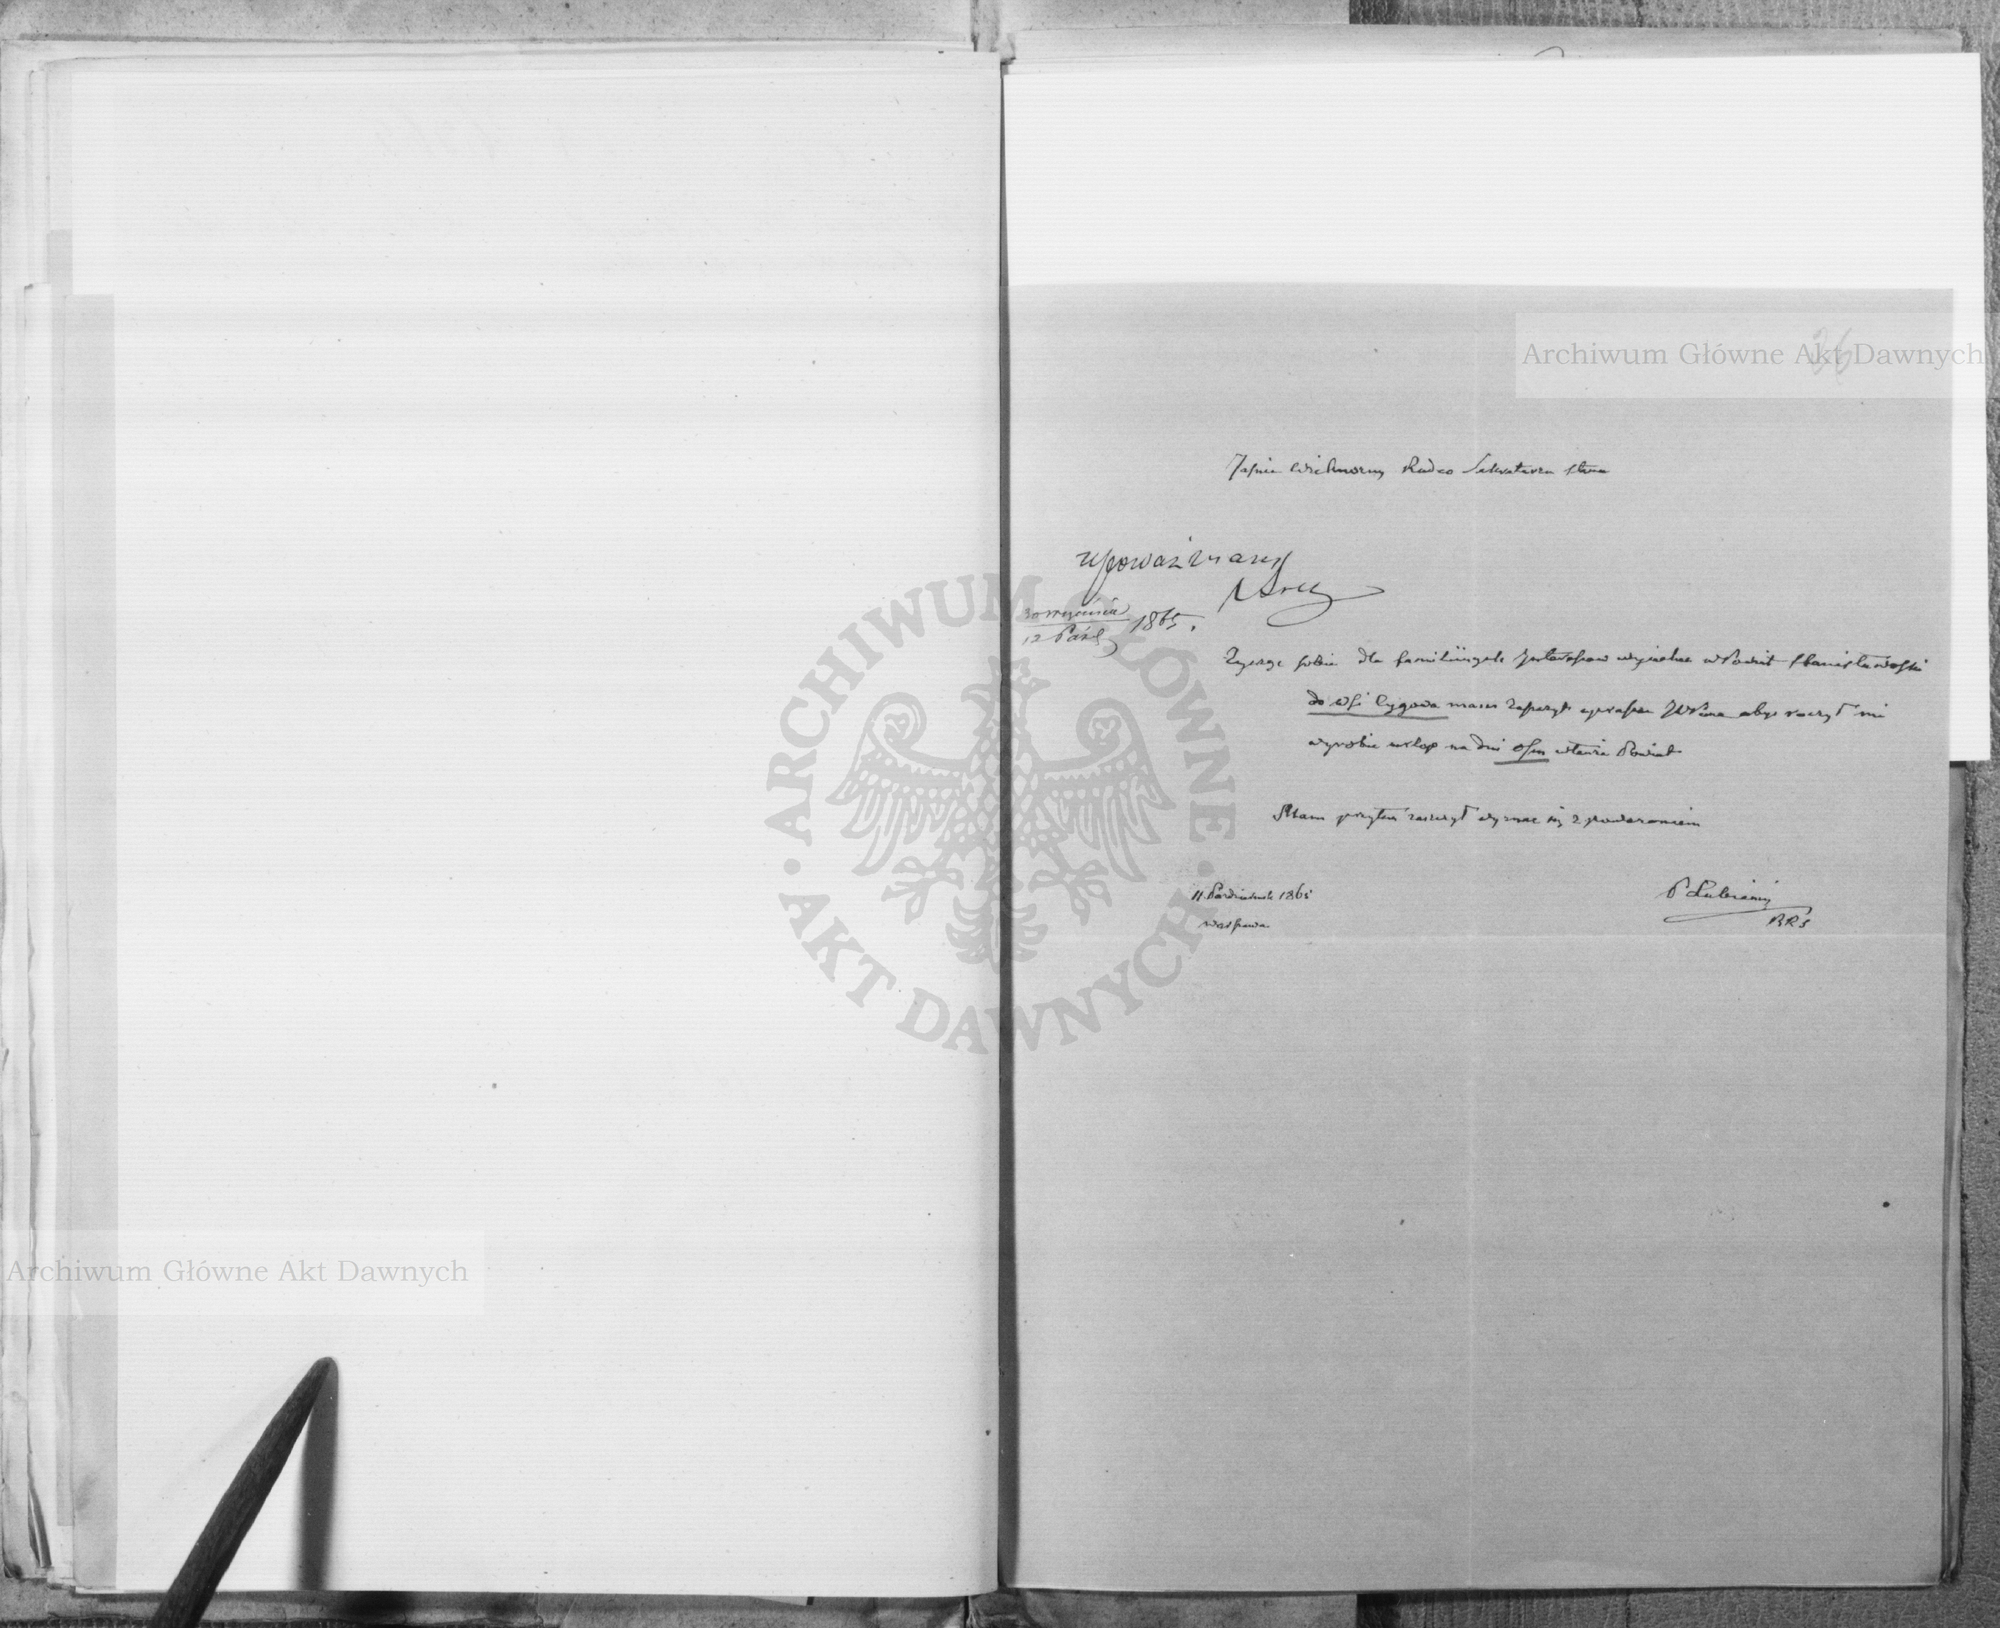 36
Archiwum Główne Akt Dawnych
Jaśnie Wielmożny Radco Sekretarzu Stanu
upoważniam
30 Września
12 Paźd 1865.
Życząc sobie dla familijnych Interesow wyjechać w Powiat Stanisławoski
do wsi Cygowa mam zaszczyt JWPana abyś raczył mi
wyrobić urlop na dni ośm w tenże Powiat
Mam przytem zaszczyt wyznać się z poważaniem
11 Października 1865
Warszawa
P Lubieński
RRS
ARCHIWUM GŁÓWNE
AKT DAWNYCH
Archiwum Główne Akt Dawnych